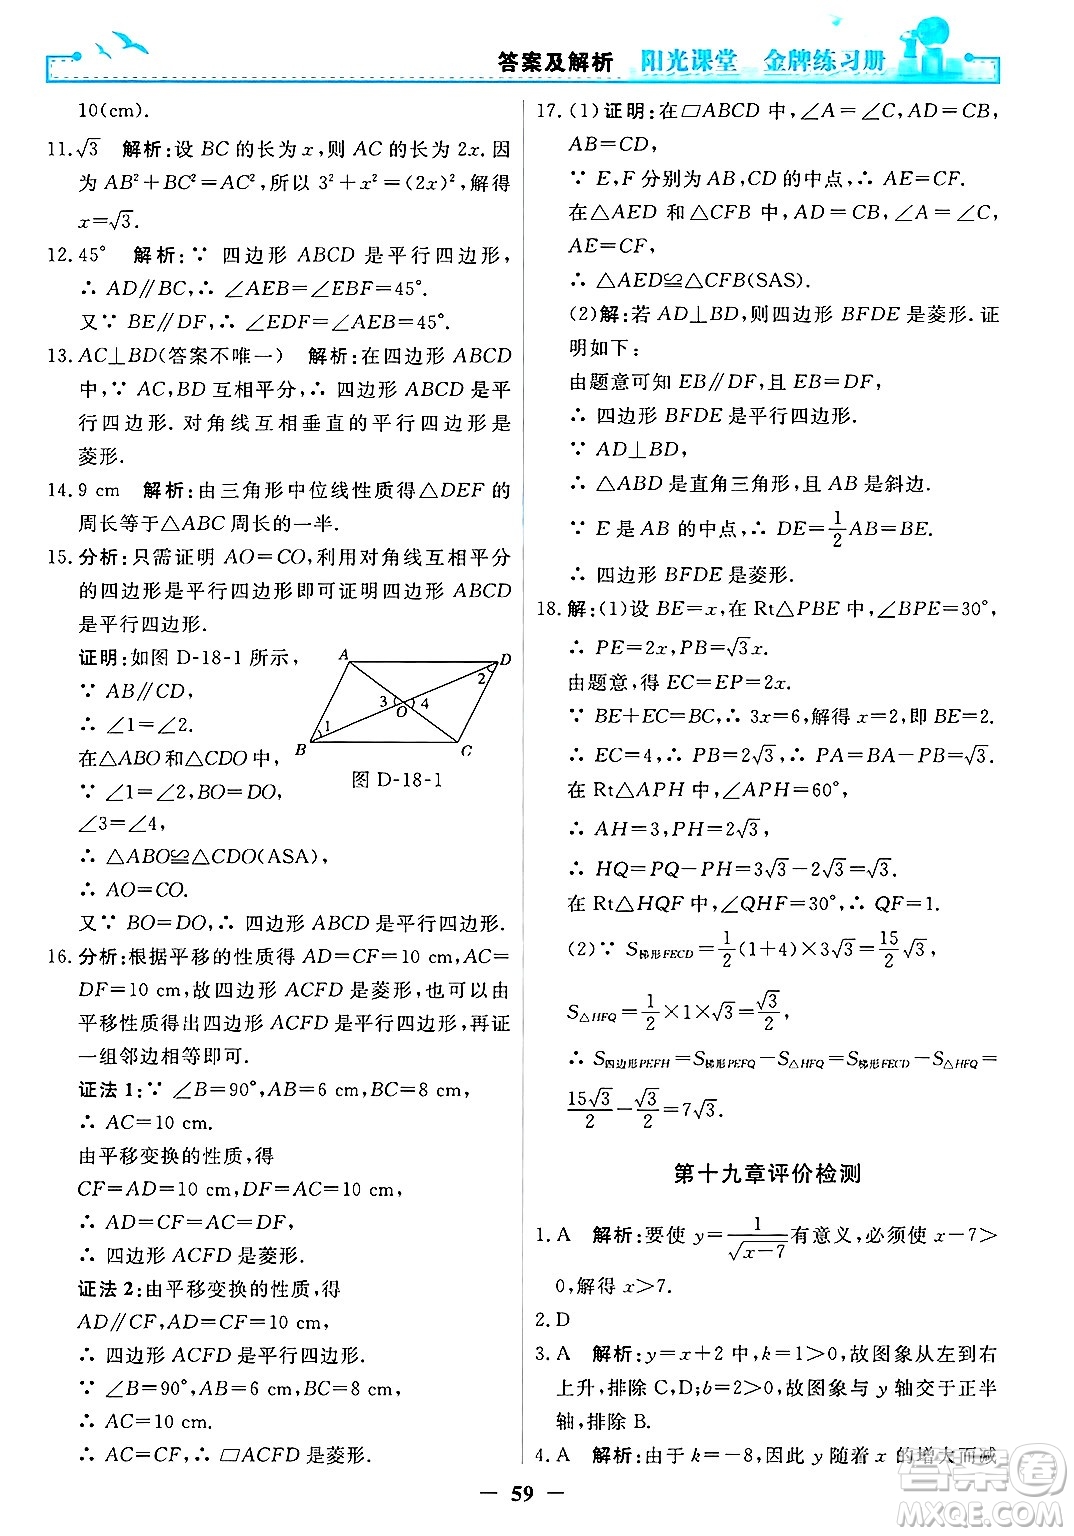 答案及解析 阳光课堂 金牌练习册
10(cm).
11.√3 解析:设 BC 的长为 x,则 AC 的长为 2x.因
为 AB²+BC²=AC²,所以 3²+x²=(2x)²,解得
x=√3.
12.45° 解析:∵ 四边形 ABCD 是平行四边形,
∴ AD∥BC,∴ ∠AEB=∠EBF=45°.
又∵ BE∥DF,∴ ∠EDF=∠AEB=45°.
13.AC⊥BD(答案不唯一) 解析:在四边形 ABCD
中,∵ AC,BD 互相平分,∴ 四边形 ABCD 是平
行四边形.对角线互相垂直的平行四边形是
菱形.
14.9 cm 解析:由三角形中位线性质得△DEF 的
周长等于△ABC 周长的一半.
15.分析:只需证明 AO=CO,利用对角线互相平分
的四边形是平行四边形即可证明四边形 ABCD
是平行四边形.
证明:如图 D-18-1 所示,
∵ AB∥CD,
∴ ∠1=∠2.
在△ABO 和△CDO 中,
∵ ∠1=∠2,BO=DO,
∠3=∠4,
∴ △ABO≌△CDO(ASA),
∴ AO=CO.
又∵ BO=DO,∴ 四边形 ABCD 是平行四边形.
A
D
2
3
4
O
1
B
C
图 D-18-1
16.分析:根据平移的性质得 AD=CF=10 cm,AC=
DF=10 cm,故四边形 ACFD 是菱形,也可以由
平移性质得出四边形 ACFD 是平行四边形,再证
一组邻边相等即可.
证法 1:∵ ∠B=90°,AB=6 cm,BC=8 cm,
∴ AC=10 cm.
由平移变换的性质,得
CF=AD=10 cm,DF=AC=10 cm,
∴ AD=CF=AC=DF,
∴ 四边形 ACFD 是菱形.
证法 2:由平移变换的性质,得
AD∥CF,AD=CF=10 cm,
∴ 四边形 ACFD 是平行四边形.
∵ ∠B=90°,AB=6 cm,BC=8 cm,
∴ AC=10 cm,
∴ AC=CF,∴ ▱ACFD 是菱形.
17.(1)证明:在▱ABCD 中,∠A=∠C,AD=CB,
AB=CD,
∵ E,F 分别为 AB,CD 的中点,∴ AE=CF.
在△AED 和△CFB 中,AD=CB,∠A=∠C,
AE=CF,
∴ △AED≌△CFB(SAS).
(2)解:若 AD⊥BD,则四边形 BFDE 是菱形.证
明如下:
由题意可知 EB∥DF,且 EB=DF,
∴ 四边形 BFDE 是平行四边形.
∵ AD⊥BD,
∴ △ABD 是直角三角形,且 AB 是斜边.
∵ E 是 AB 的中点,∴ DE=1/2AB=BE.
∴ 四边形 BFDE 是菱形.
18.解:(1)设 BE=x,在 Rt△PBE 中,∠BPE=30°,
∴ PE=2x,PB=√3x.
由题意,得 EC=EP=2x.
∵ BE+EC=BC,∴ 3x=6,解得 x=2,即 BE=2.
∴ EC=4,∴ PB=2√3,∴ PA=BA-PB=√3.
在 Rt△APH 中,∠APH=60°,
∴ AH=3,PH=2√3,
∴ HQ=PQ-PH=3√3-2√3=√3.
在 Rt△HQF 中,∠QHF=30°,∴ QF=1.
(2)∵ S梯形FECD=1/2(1+4)×3√3=15/2√3,
S△HFQ=1/2×1×√3=√3/2,
∴ S四边形PEFH=S梯形PEFQ-S△HFQ=S梯形FECD-S△HFQ=
15√3/2-√3/2=7√3.
第十九章评价检测
1.A 解析:要使 y=1/√(x-7)有意义,必须使 x-7>
0,解得 x>7.
2.D
3.A 解析:y=x+2 中,k=1>0,故图象从左到右
上升,排除 C,D;b=2>0,故图象与 y 轴交于正半
轴,排除 B.
4.A 解析:由于 k=-8,因此 y 随着 x 的增大而减
— 59 —
答案圈
MXQE.COM